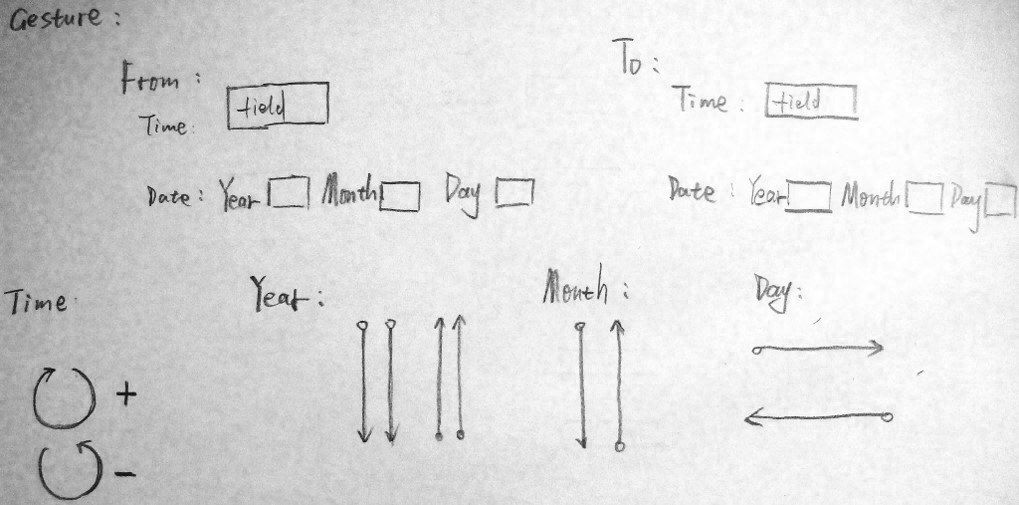 Gesture:
From:
Time: field
Date: Year Month Day
To:
Time: field
Date: Year Month Day
Time
+
-
Year:
Month:
Day: